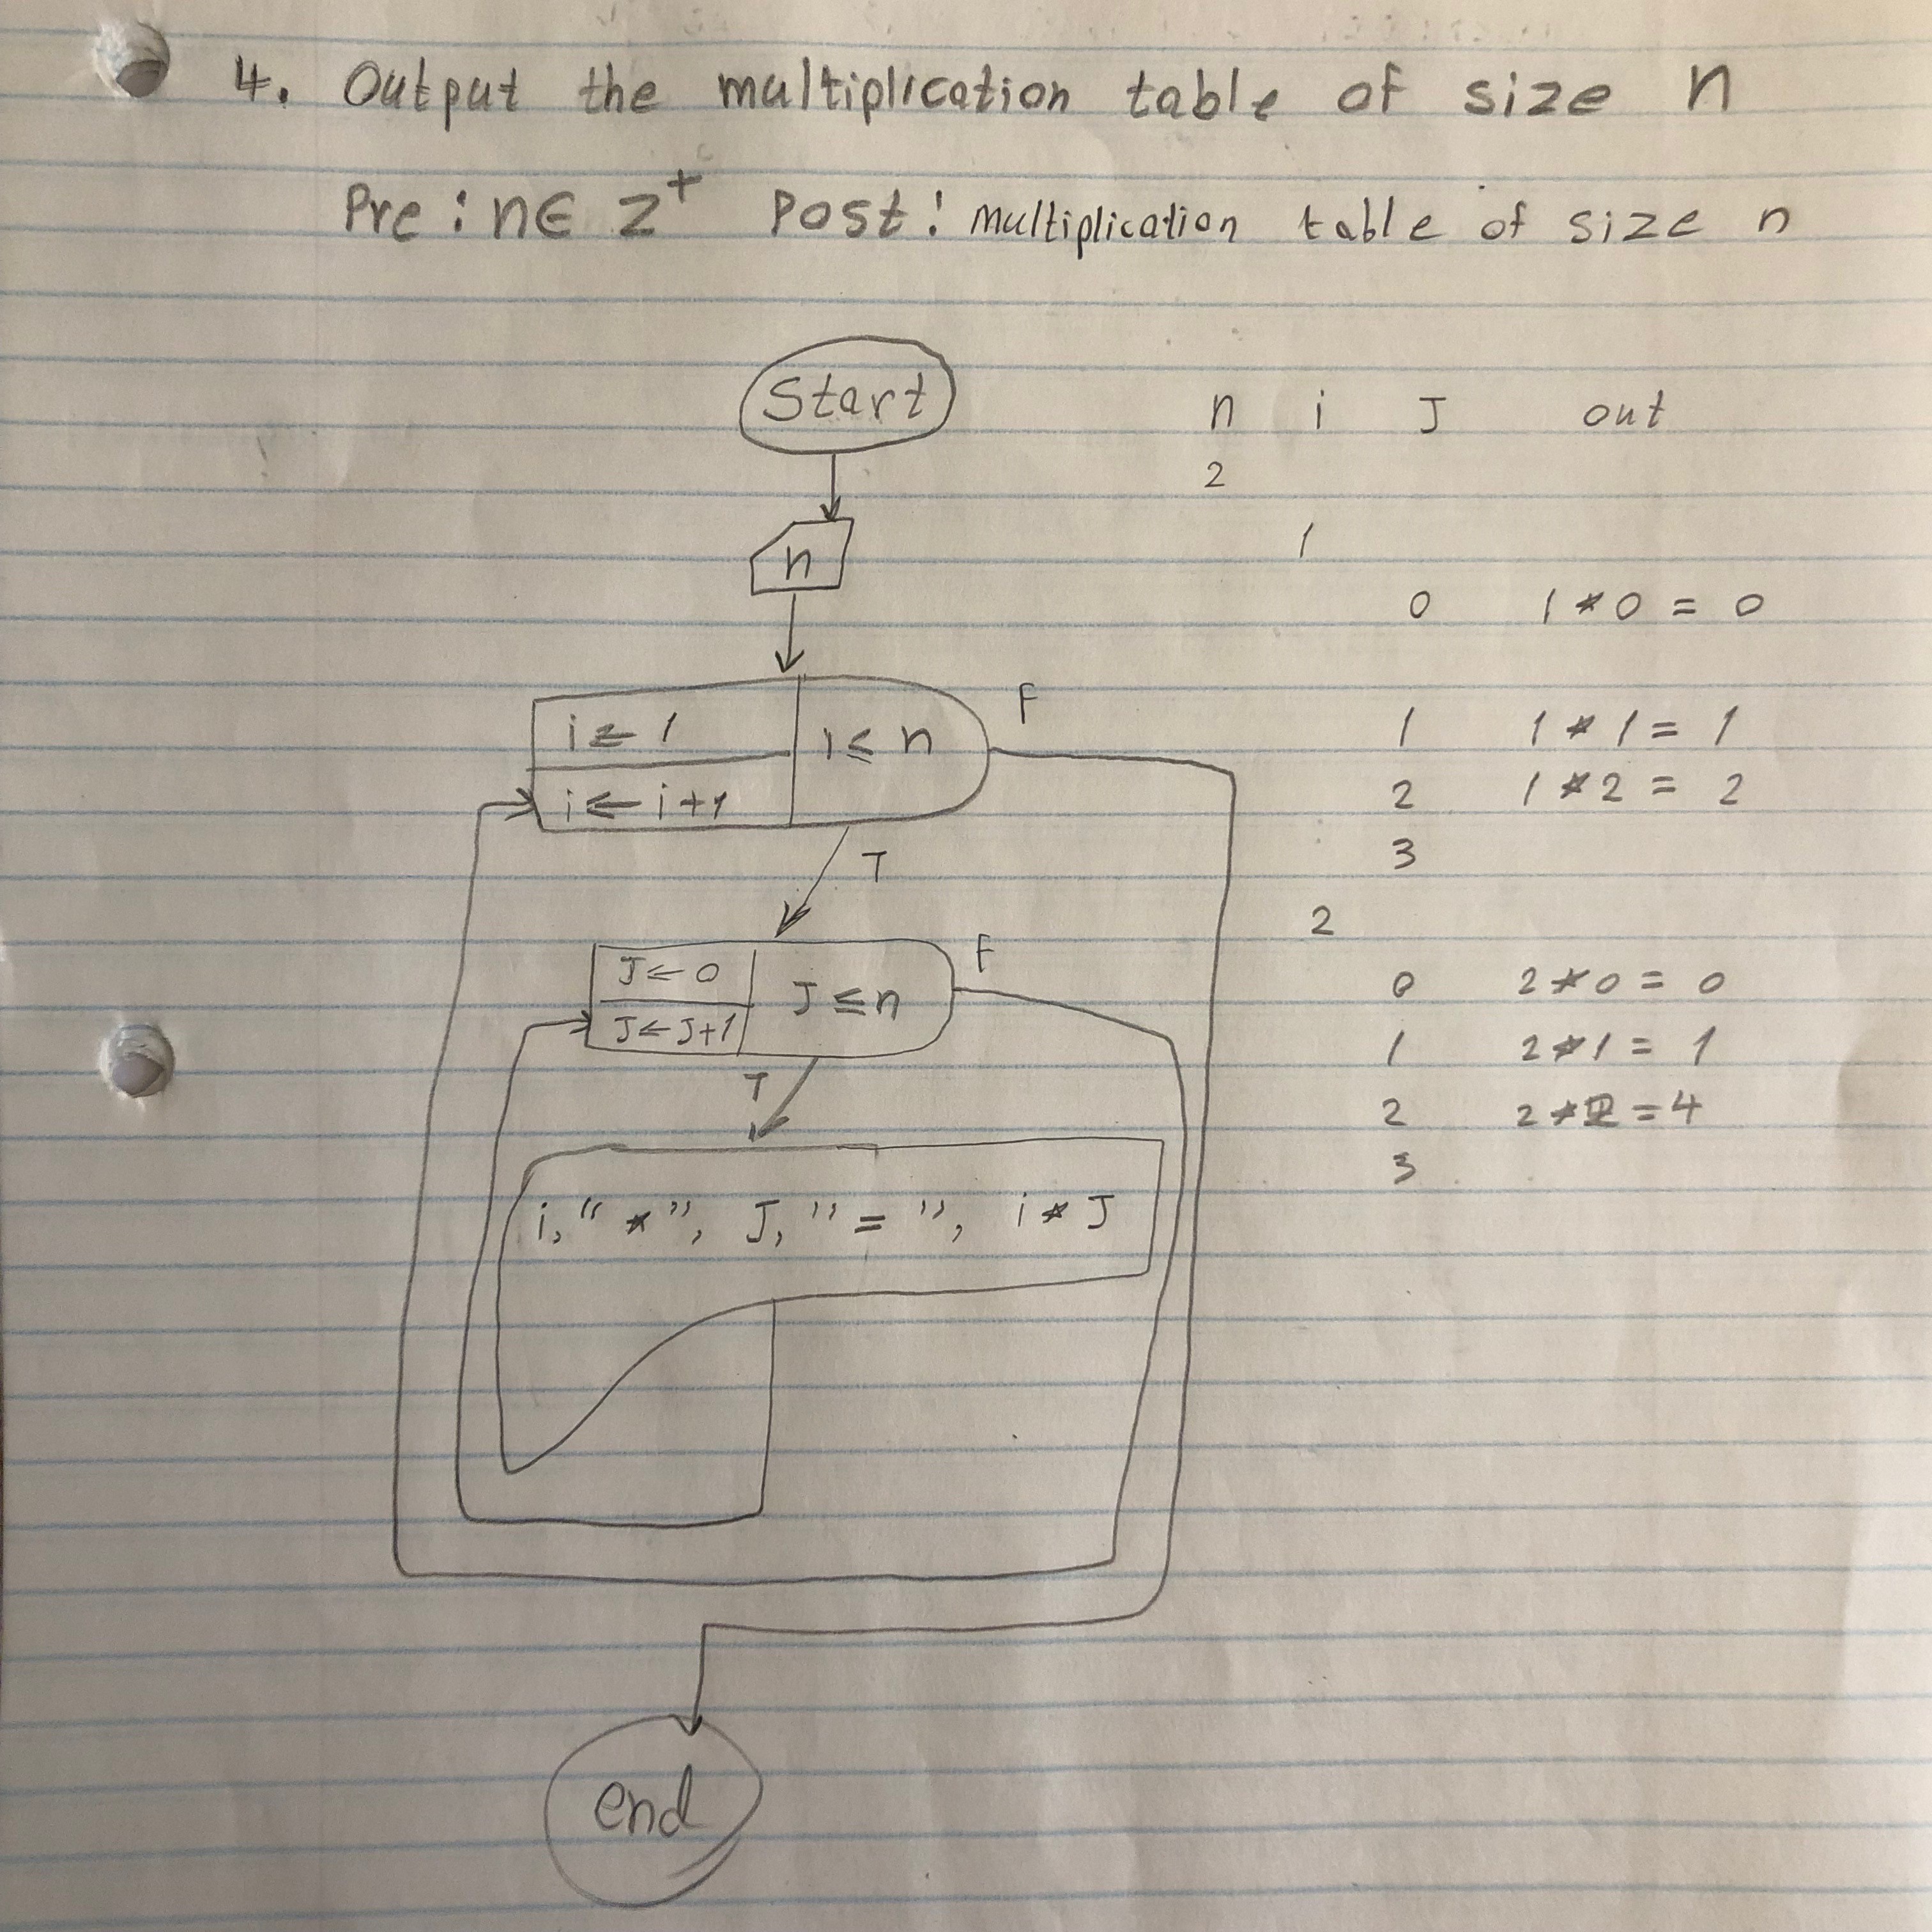 4. Output the multiplication table of size n
Pre: n∈ Z⁺ Post: multiplication table of size n
Start
n
i ← 1
i ← i+1
i ≤ n
F
T
J ← 0
J ← J+1
J ≤ n
F
T
i, "*", J, "=", i * J
end
n i J out
2
1
0 1 * 0 = 0
1 1 * 1 = 1
2 1 * 2 = 2
3
2
0 2 * 0 = 0
1 2 * 1 = 1
2 2 * 2 = 4
3